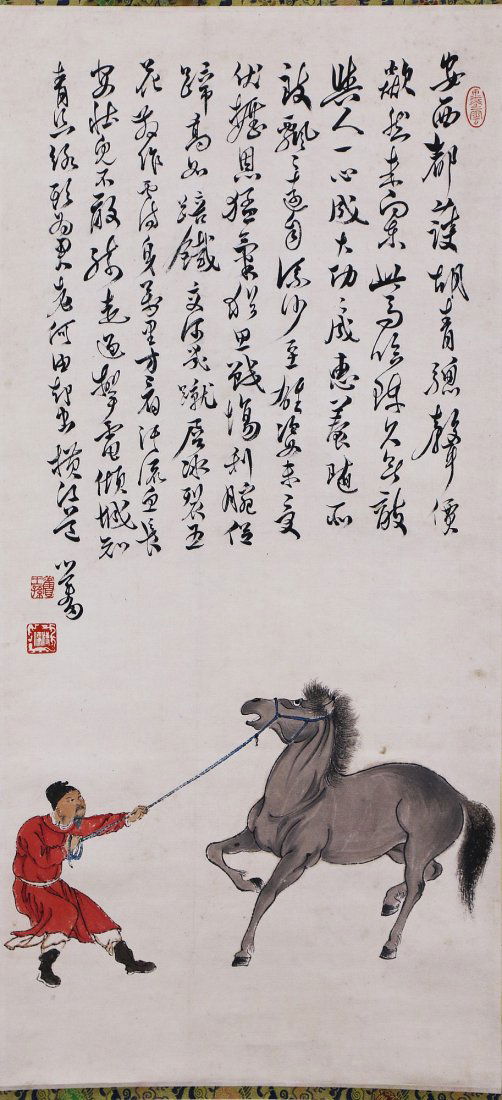 安西都護胡青驄聲價
欻然來向東此馬臨陣久無敵
與人一心成大功〻成惠養隨所
致飄〻遠自流沙至雄姿未受
伏櫪恩猛氣猶思戰場利腕促
蹄高如踣鐵交河幾蹴層冰裂五
花散作雲滿身萬里方看汗流血長
安壯兒不敢騎走過掣電傾城知
青絲絡頭為君老何由却出橫門道 心畬
舊王孫